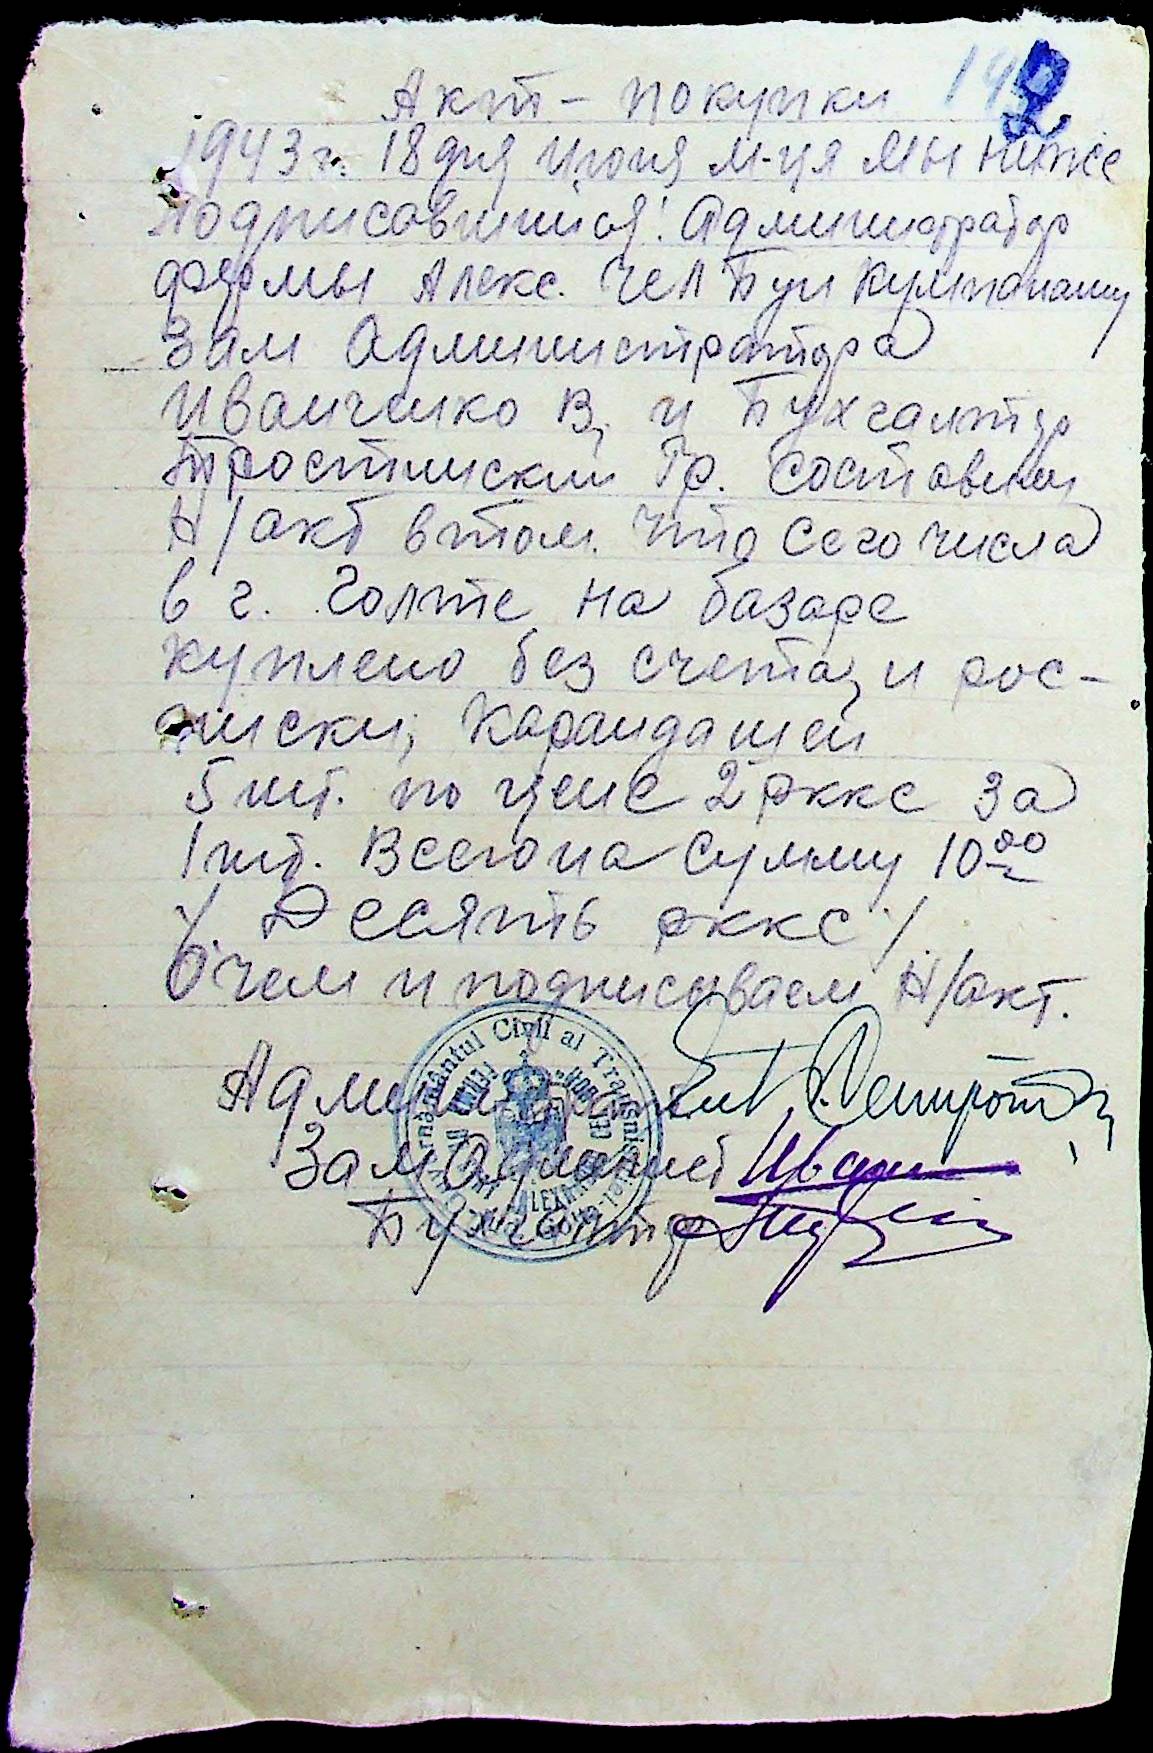 Акт – покупки
1943 г. 18 дня Июня м-ця Мы ниже
подписавшиися: Администратор
фермы Алекс. Чел Бун
Зам Администратора
Иванченко В, и Бухгалтер
Тростинский Гр. составили
Н/акт в том. что Сего числа
в г. Голте на базаре
куплено без счета, и рос-
писки, Карандашей
5 шт. по цене 2 ркке за
1 шт. Всего на сумму 10 00
/. Десять ркке ./.
О чем и подписываем Н/акт.
Админ
Зам Админист Иван
Бухгалтер
Guvernământul Civil al Transnistriei